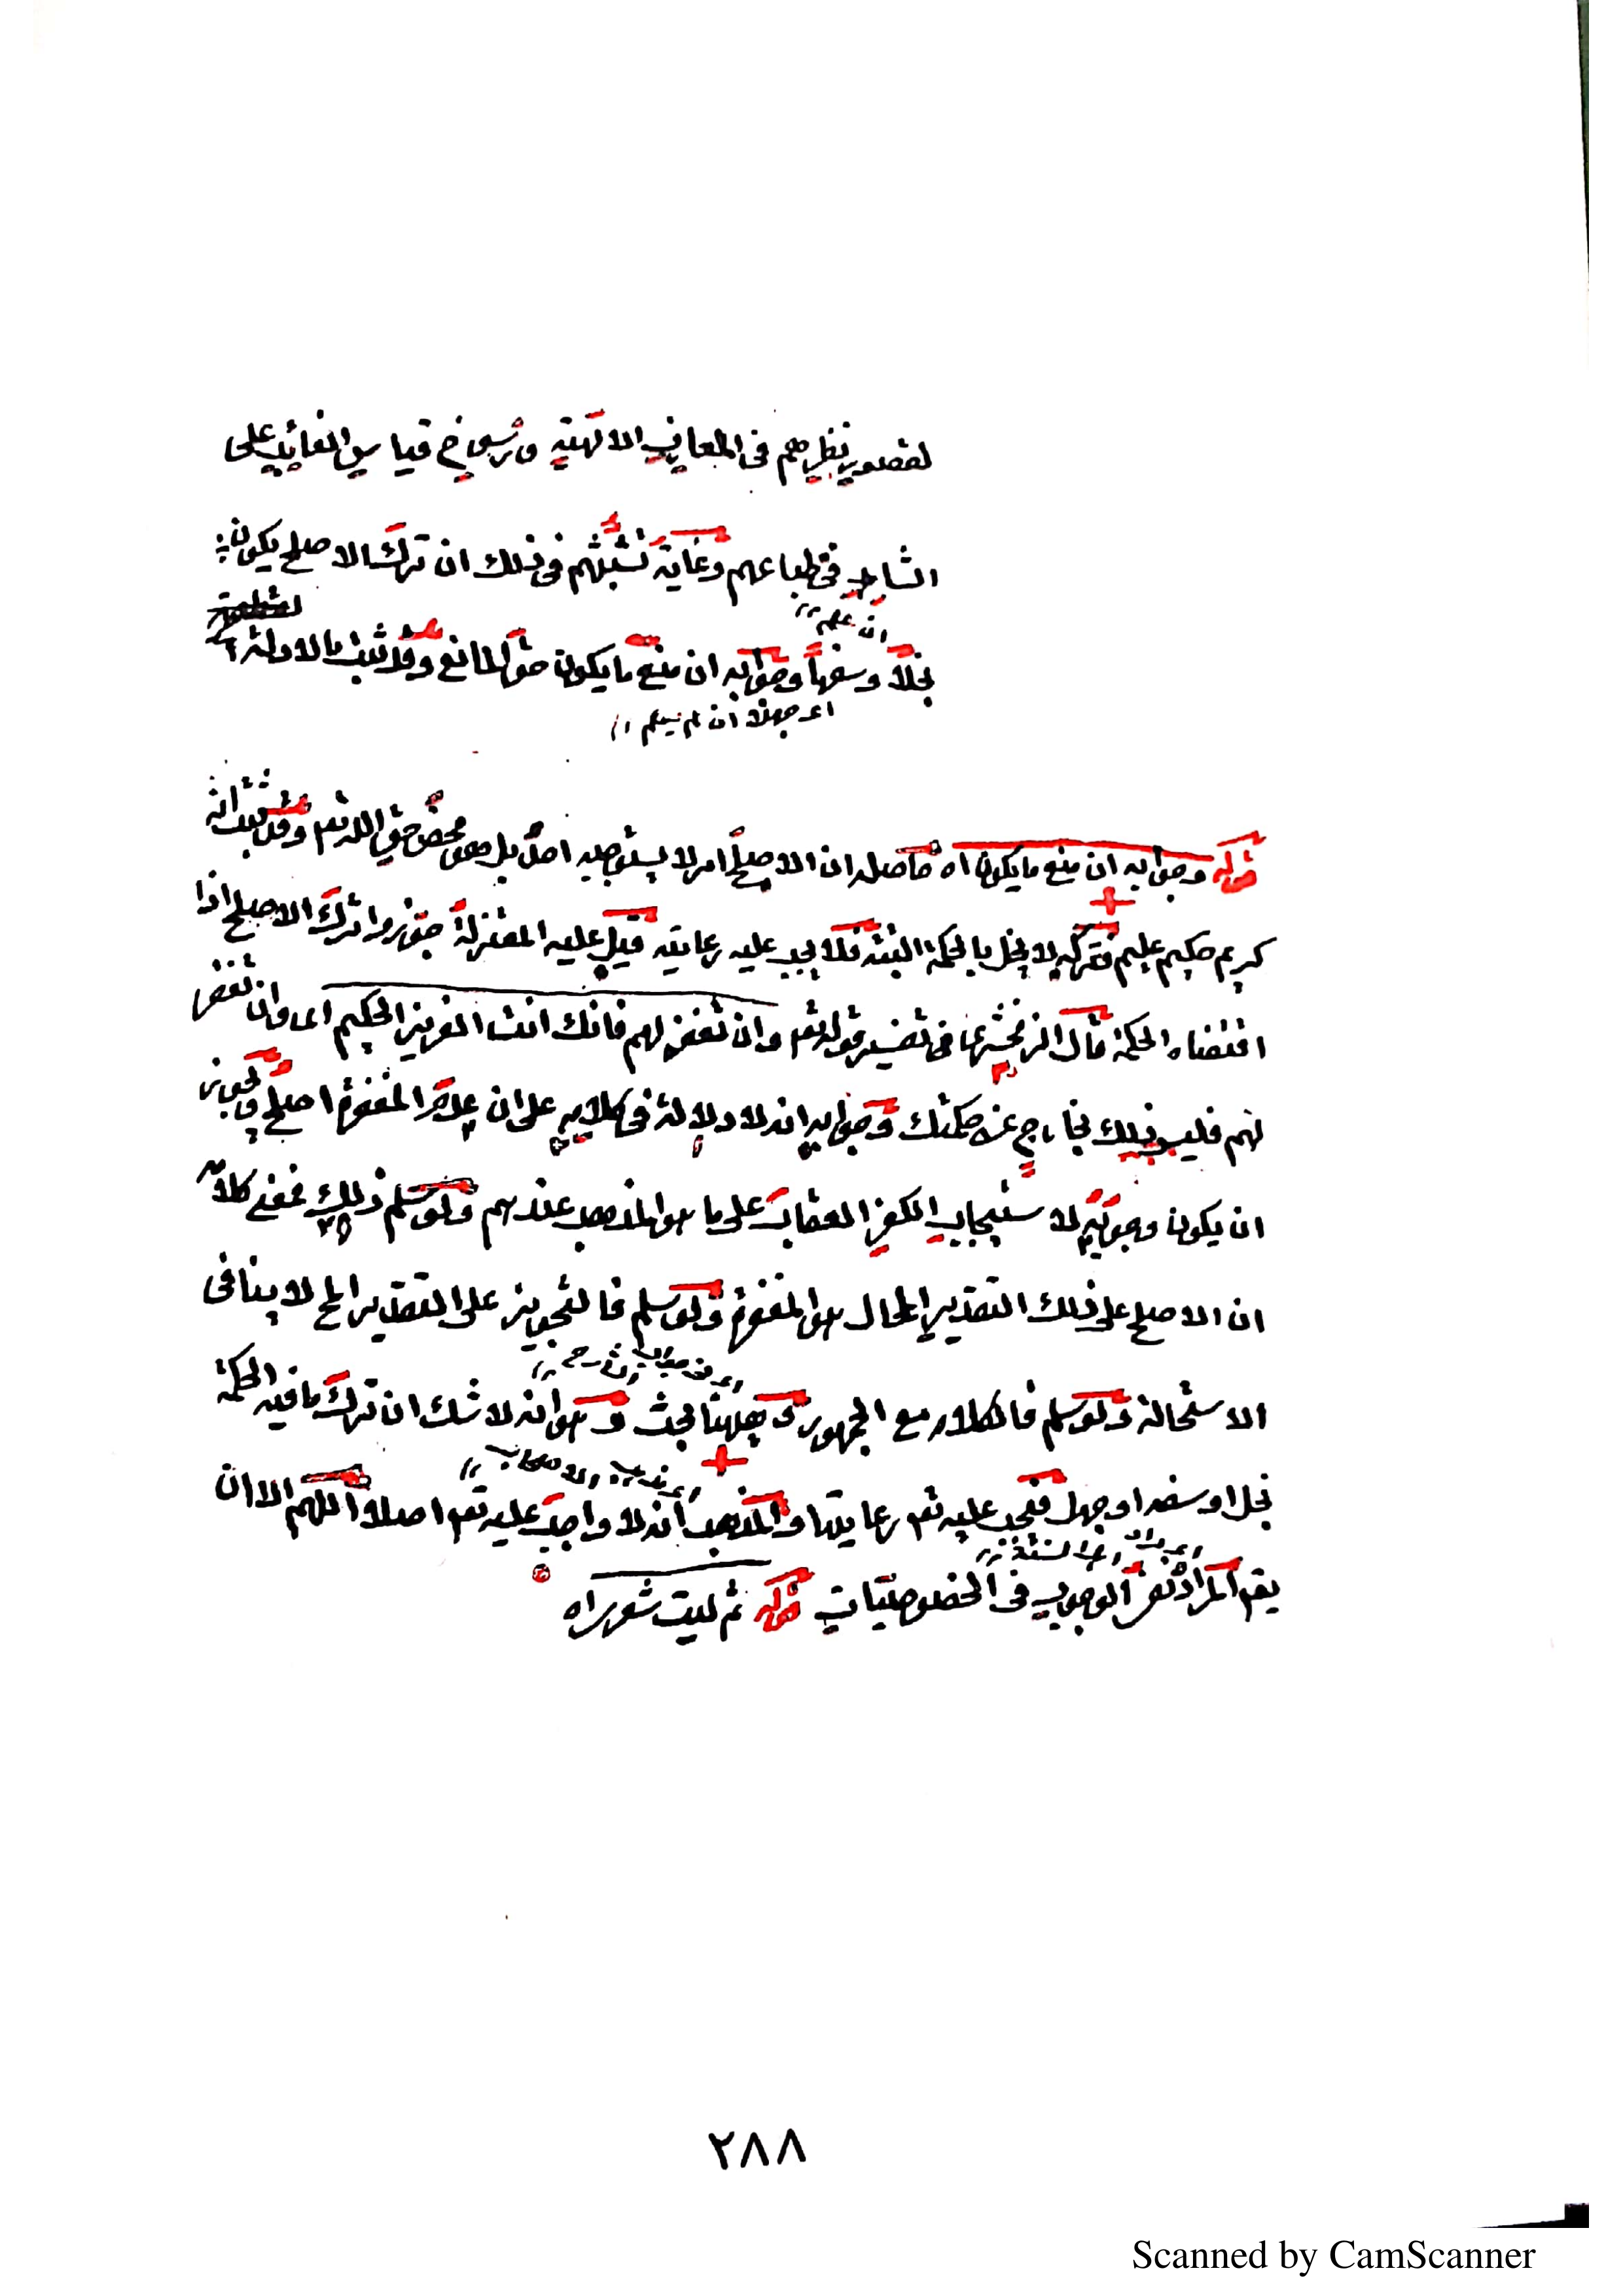 لقصور نظرهم فى المعارف الالهية ورسوخ قياس الغائب على
الشاهد فى طباعهم وغاية تشبثهم فى ذلك ان ترك الاصلح يكون
ان علم
بخلا وسفها وجوابه ان منع ما يكون حق المانع وقد ثبت بالادلة
اى جهلا ان لم يعلم
قوله وجوابه ان منع ما يكون اه حاصله ان الاصلح امر لا يستوجبه احد بل هو محض حق الله تع وقد ثبت انه
كريم حكيم عليم فتركه لا يخل بالحكمة البتة فلا يجب عليه رعايته قيل عليه المعتزلة جوزوا ترك الاصلح اذا
اقتضاه الحكمة قال الزمخشرى فى تفسير قوله تع وان تغفر لهم فانك انت العزيز الحكيم اى وان تغفر
لهم فليس ذلك بخارج عن حكمتك وجوابه انه لا دلالة فى كلامه على ان عدم المغفرة اصلح لجواز
ان يكون وجوبه لاستيجاب الكفر العقاب على ما هو المذهب عندهم ولو سلم ذلك فمعنى كلامه
ان الاصلح على ذلك التقدير المحال هو المغفرة ولو سلم فالتجويز على التقدير المح لا ينافى
الاستحالة ولو سلم فالكلام مع الجمهور ثم ههنا بحث وهو انه لا شك ان ترك ما فيه الحكمة
بخل او سفه او جهل فيجب عليه تع رعايتها والمذهب انه لا واجب عليه تع اصلا اللهم الا ان
يق المراد نفى الوجوب فى الخصوصيات قوله ثم ليت شعرى اه
٢٨٨
Scanned by CamScanner